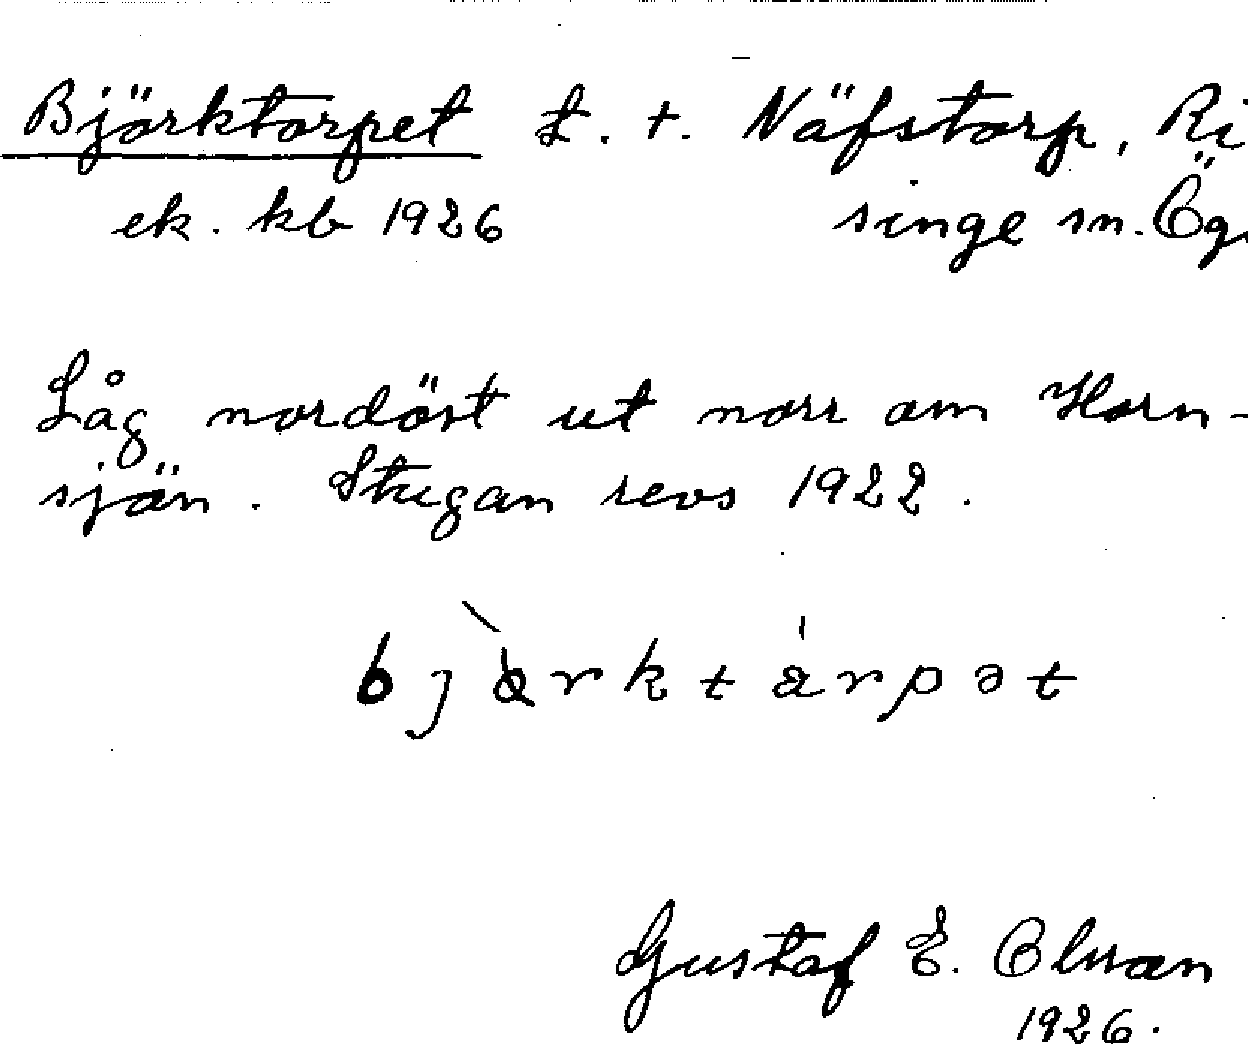 Björktorpet t. t. Näfstorp, Ri
ek. kb 1926 singe sn. Ög
Låg nordöst ut norr om Horn-
sjön. Stugan revs 1922.
bjàrktárpət
Gustaf E. Olsson
1926.